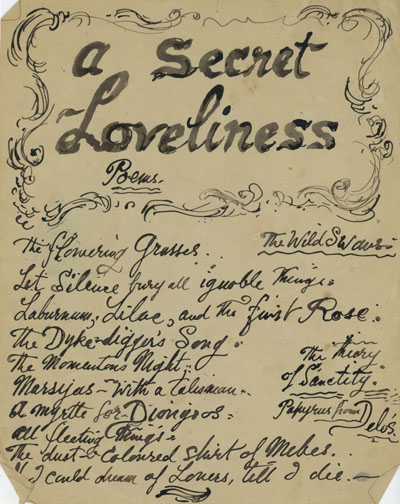 a Secret
Loveliness
Poems.
The flowering Grasses..
The Wild Swans -
Let Silence bury all ignoble Things.
Laburnum, Lilac, and the First Rose.
The Dyke-digger's Song.
The Momentous Night.
The theory
of Sanctity.
Marsyas - With a talisman..
Papyrus from Delos.
A myrtle for Dionysos.
All fleeting Things.
The dust-coloured shirt of Mebes..
"I could dream of Lovers, till I die. -